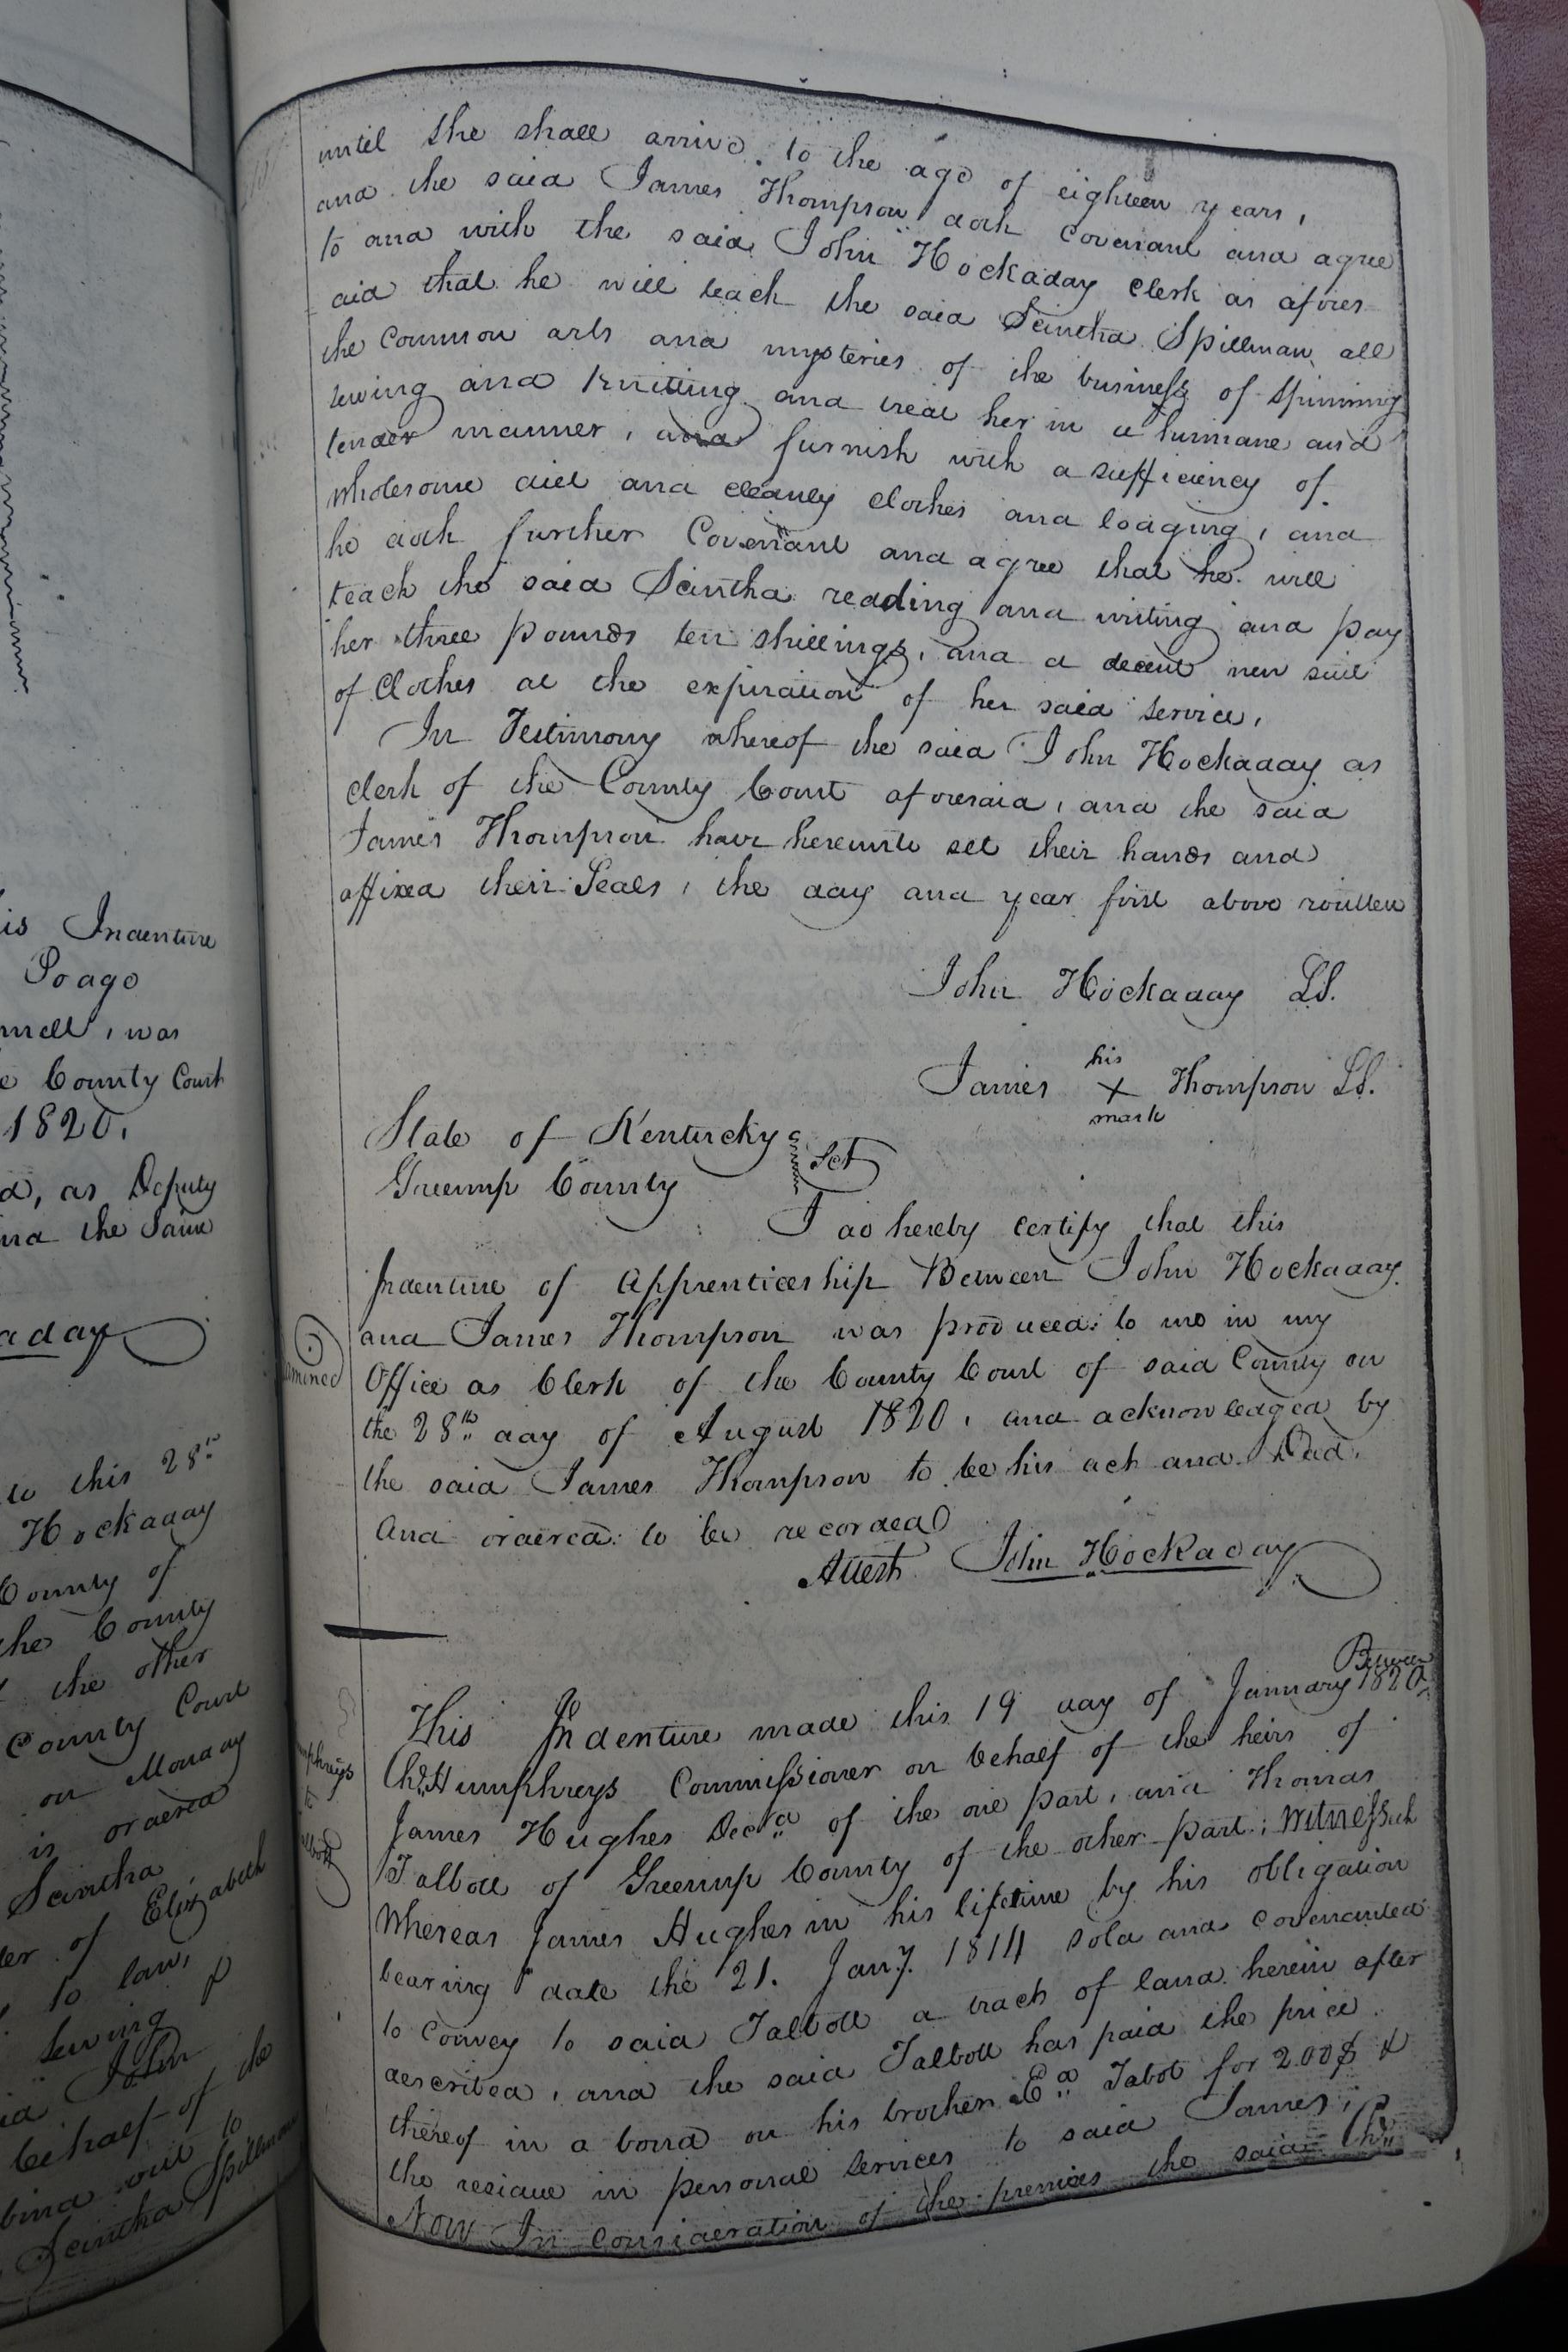 is Indenture
Poage
nnell, was
e County Court
1820.
d, as Deputy
and the Same
aday
to this 28th
Hockaday
County of
the County
the other
County Court
on Monday
is ordered
Scintha
ter of Elizabeth
to law,
sewing &
id John
behalf of the
bind out to
Scintha Spillman
until she shall arrive to the age of eighteen years,
and the said James Thompson doth Covenant and agree
to and with the said John Hockaday Clerk as afores
aid that he will teach the said Scintha Spillman all
the Common arts and mysteries of the business of Spinning
sewing and Knitting and treat her in a humane and
tender manner, and furnish with a sufficiency of
wholesome diet and cleanly clothes and lodging, and
he doth further Covenant and agree that he will
teach the said Scintha reading and writing and pay
her three pounds ten shillings, and a decent new suit
of Clothes at the expiration of her said service,
In Testimony whereof the said John Hockaday as
Clerk of the County Court aforesaid, and the said
James Thompson have hereunto set their hands and
affixed their Seals, the day and year first above written
John Hockaday LS.
James his X mark Thompson LS.
State of Kentucky
Greenup County Sct
I do hereby certify that this
Indenture of Apprenticeship Between John Hockaday
and James Thompson was produced to me in my
Office as Clerk of the County Court of said County on
the 28th day of August 1820, and acknowledged by
the said James Thompson to be his act and Deed.
And ordered to be recorded
Attest John Hockaday
amined
mphreys
to
albott
This Indenture made this 19 day of January 1820 Between
Chs Humphreys Commissioner on behalf of the heirs of
James Hughes Decd of the one part, and Thomas
Talbott of Greenup County of the other part; Witnesseth
Whereas James Hughes in his lifetime by his obligation
bearing date the 21. Jany. 1814 sold and covenanted
to Convey to said Talbott a tract of land herein after
described, and the said Talbott has paid the price
thereof in a bond on his brother Ed Tabot for 200$ &
the residue in personal services to said James;
Now In Consideration of the premises the said Chs